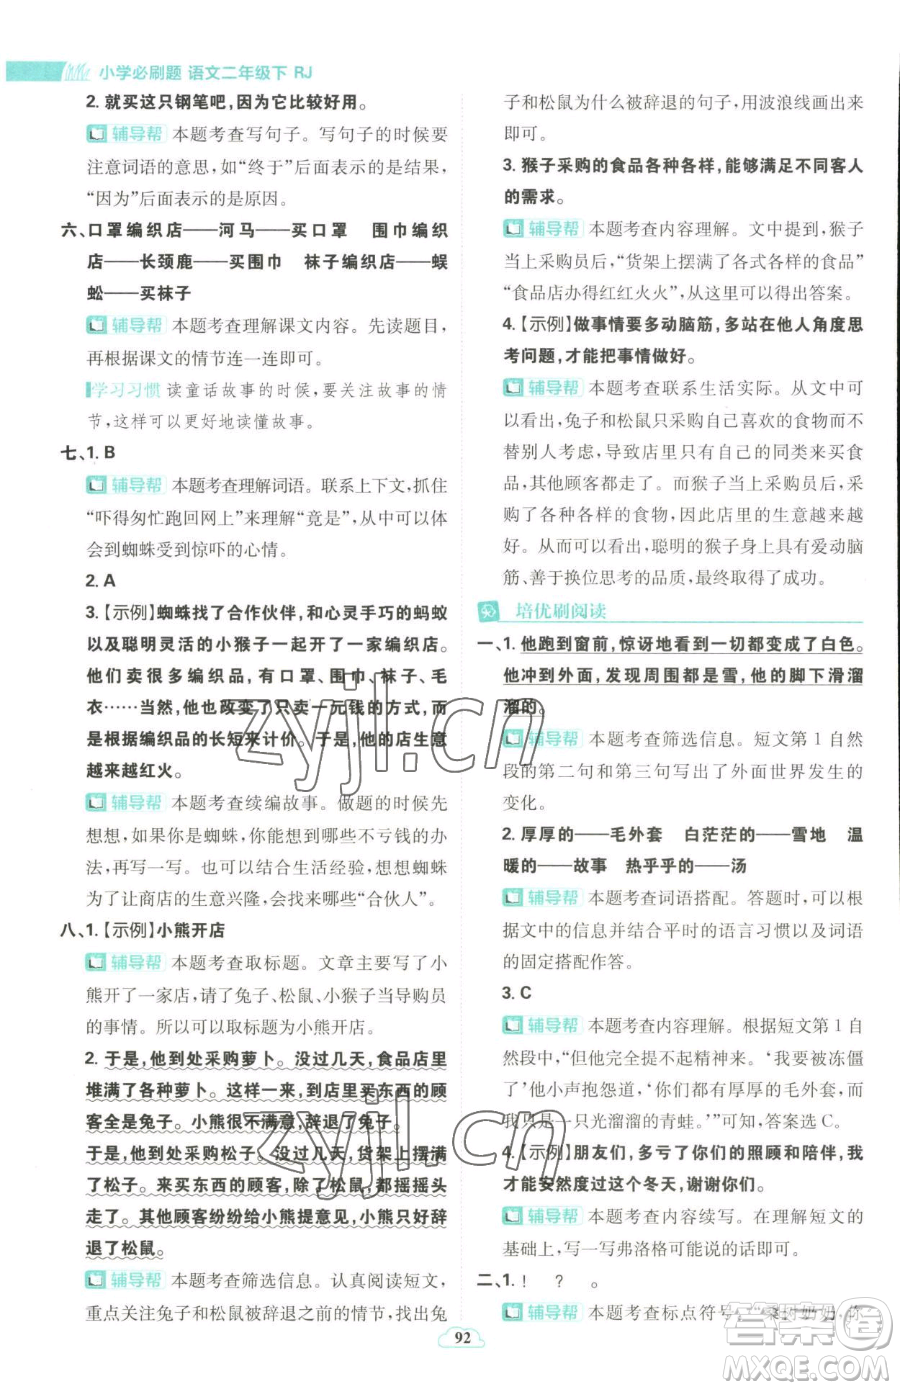 小学必刷题 语文二年级下 RJ
2. 就买这只钢笔吧,因为它比较好用。
辅导帮 本题考查写句子。写句子的时候要
注意词语的意思,如“终于”后面表示的是结果,
“因为”后面表示的是原因。
六、口罩编织店——河马——买口罩 围巾编织
店——长颈鹿——买围巾 袜子编织店——蜈
蚣——买袜子
辅导帮 本题考查理解课文内容。先读题目,
再根据课文的情节连一连即可。
学习习惯 读童话故事的时候,要关注故事的情
节,这样可以更好地读懂故事。
七、1. B
辅导帮 本题考查理解词语。联系上下文,抓住
“吓得匆忙跑回网上”来理解“竟是”,从中可以体
会到蜘蛛受到惊吓的心情。
2. A
3.【示例】蜘蛛找了合作伙伴,和心灵手巧的蚂蚁
以及聪明灵活的小猴子一起开了一家编织店。
他们卖很多编织品,有口罩、围巾、袜子、毛
衣……当然,他改变了只卖一元钱的方式,而
是根据编织品的长短来计价。于是,他的店生意
越来越红火。
辅导帮 本题考查续编故事。做题的时候先
想想,如果你是蜘蛛,你能想到哪些不亏钱的办
法,再写一写。可以结合生活经验,想想蜘蛛
为了让商店的生意兴隆,会找来哪些“合伙人”。
八、1.【示例】小熊开店
辅导帮 本题考查取标题。文章主要写了小
熊开了一家店,请了兔子、松鼠、小猴子当导购员
的事情。所以可以取标题为小熊开店。
2. 于是,他到处采购萝卜。没过几天,食品店里
堆满了各种萝卜。这样一来,到店里买东西的顾
客全是兔子。小熊很不满意,辞退了兔子。
于是,他到处采购松子。没过几天,货架上摆满
了松子。来买东西的顾客,除了松鼠,都摇摇头
走了。其他顾客纷纷给小熊提意见,小熊只好辞
退了松鼠。
辅导帮 本题考查筛选信息。认真阅读短文,
重点关注兔子和松鼠被辞退之前的情节,找出兔
子和松鼠为什么被辞退的句子,用波浪线画出来
即可。
3. 猴子采购的食品各种各样,能够满足不同客人
的需求。
辅导帮 本题考查内容理解。文中提到,猴子
当上采购员后,“货架上摆满了各式各样的食品”
“食品店办得红红火火”,从中可以得出答案。
4.【示例】做事情要多动脑筋,多站在他人角度思
考问题,才能把事情做好。
辅导帮 本题考查联系生活实际。从文中可
以看出,兔子和松鼠只采购自己喜欢的食物而不
替别人考虑,导致店里只有自己爱吃的几种食
物,其他顾客都走了。而猴子当上采购员后,采
购了各种各样的食物,因此店里的生意越来越
好。从而可以看出,聪明的猴子身上具有爱动脑
筋、善于换位思考的品质,最终取得了成功。
培优刷阅读
一、1. 他跑到窗前,惊讶地看到一切都变成了白色。
他冲到外面,发现周围都是雪,他的脚下滑溜
溜的。
辅导帮 本题考查筛选信息。短文第 1 自然
段的第二句和第三句写出了外面世界发生的
变化。
2. 厚厚的——毛外套 白茫茫的——雪地 温
暖的——故事 热乎乎的——汤
辅导帮 本题考查词语搭配。答题时,可以根
据文中的信息并结合平时的语言习惯以及词语
的固定搭配作答。
3. C
辅导帮 本题考查内容理解。根据短文第 1 自
然段中,“但他完全提不起精神来。‘我要被冻僵
了’他小声抱怨道,‘你们都有厚厚的毛外套。而
我只是一只光溜溜的青蛙。’”可知,答案选 C。
4.【示例】朋友们,多亏了你们的照顾和陪伴,我
才能安然度过这个冬天,谢谢你们。
辅导帮 本题考查内容续写。在理解短文的
基础上,写一写弗洛格可能会说的话即可。
二、1. ! ? 。
辅导帮 本题考查标点符号。
92
zyjl.cn
zyjl.cn
答案圈
MXQE.COM